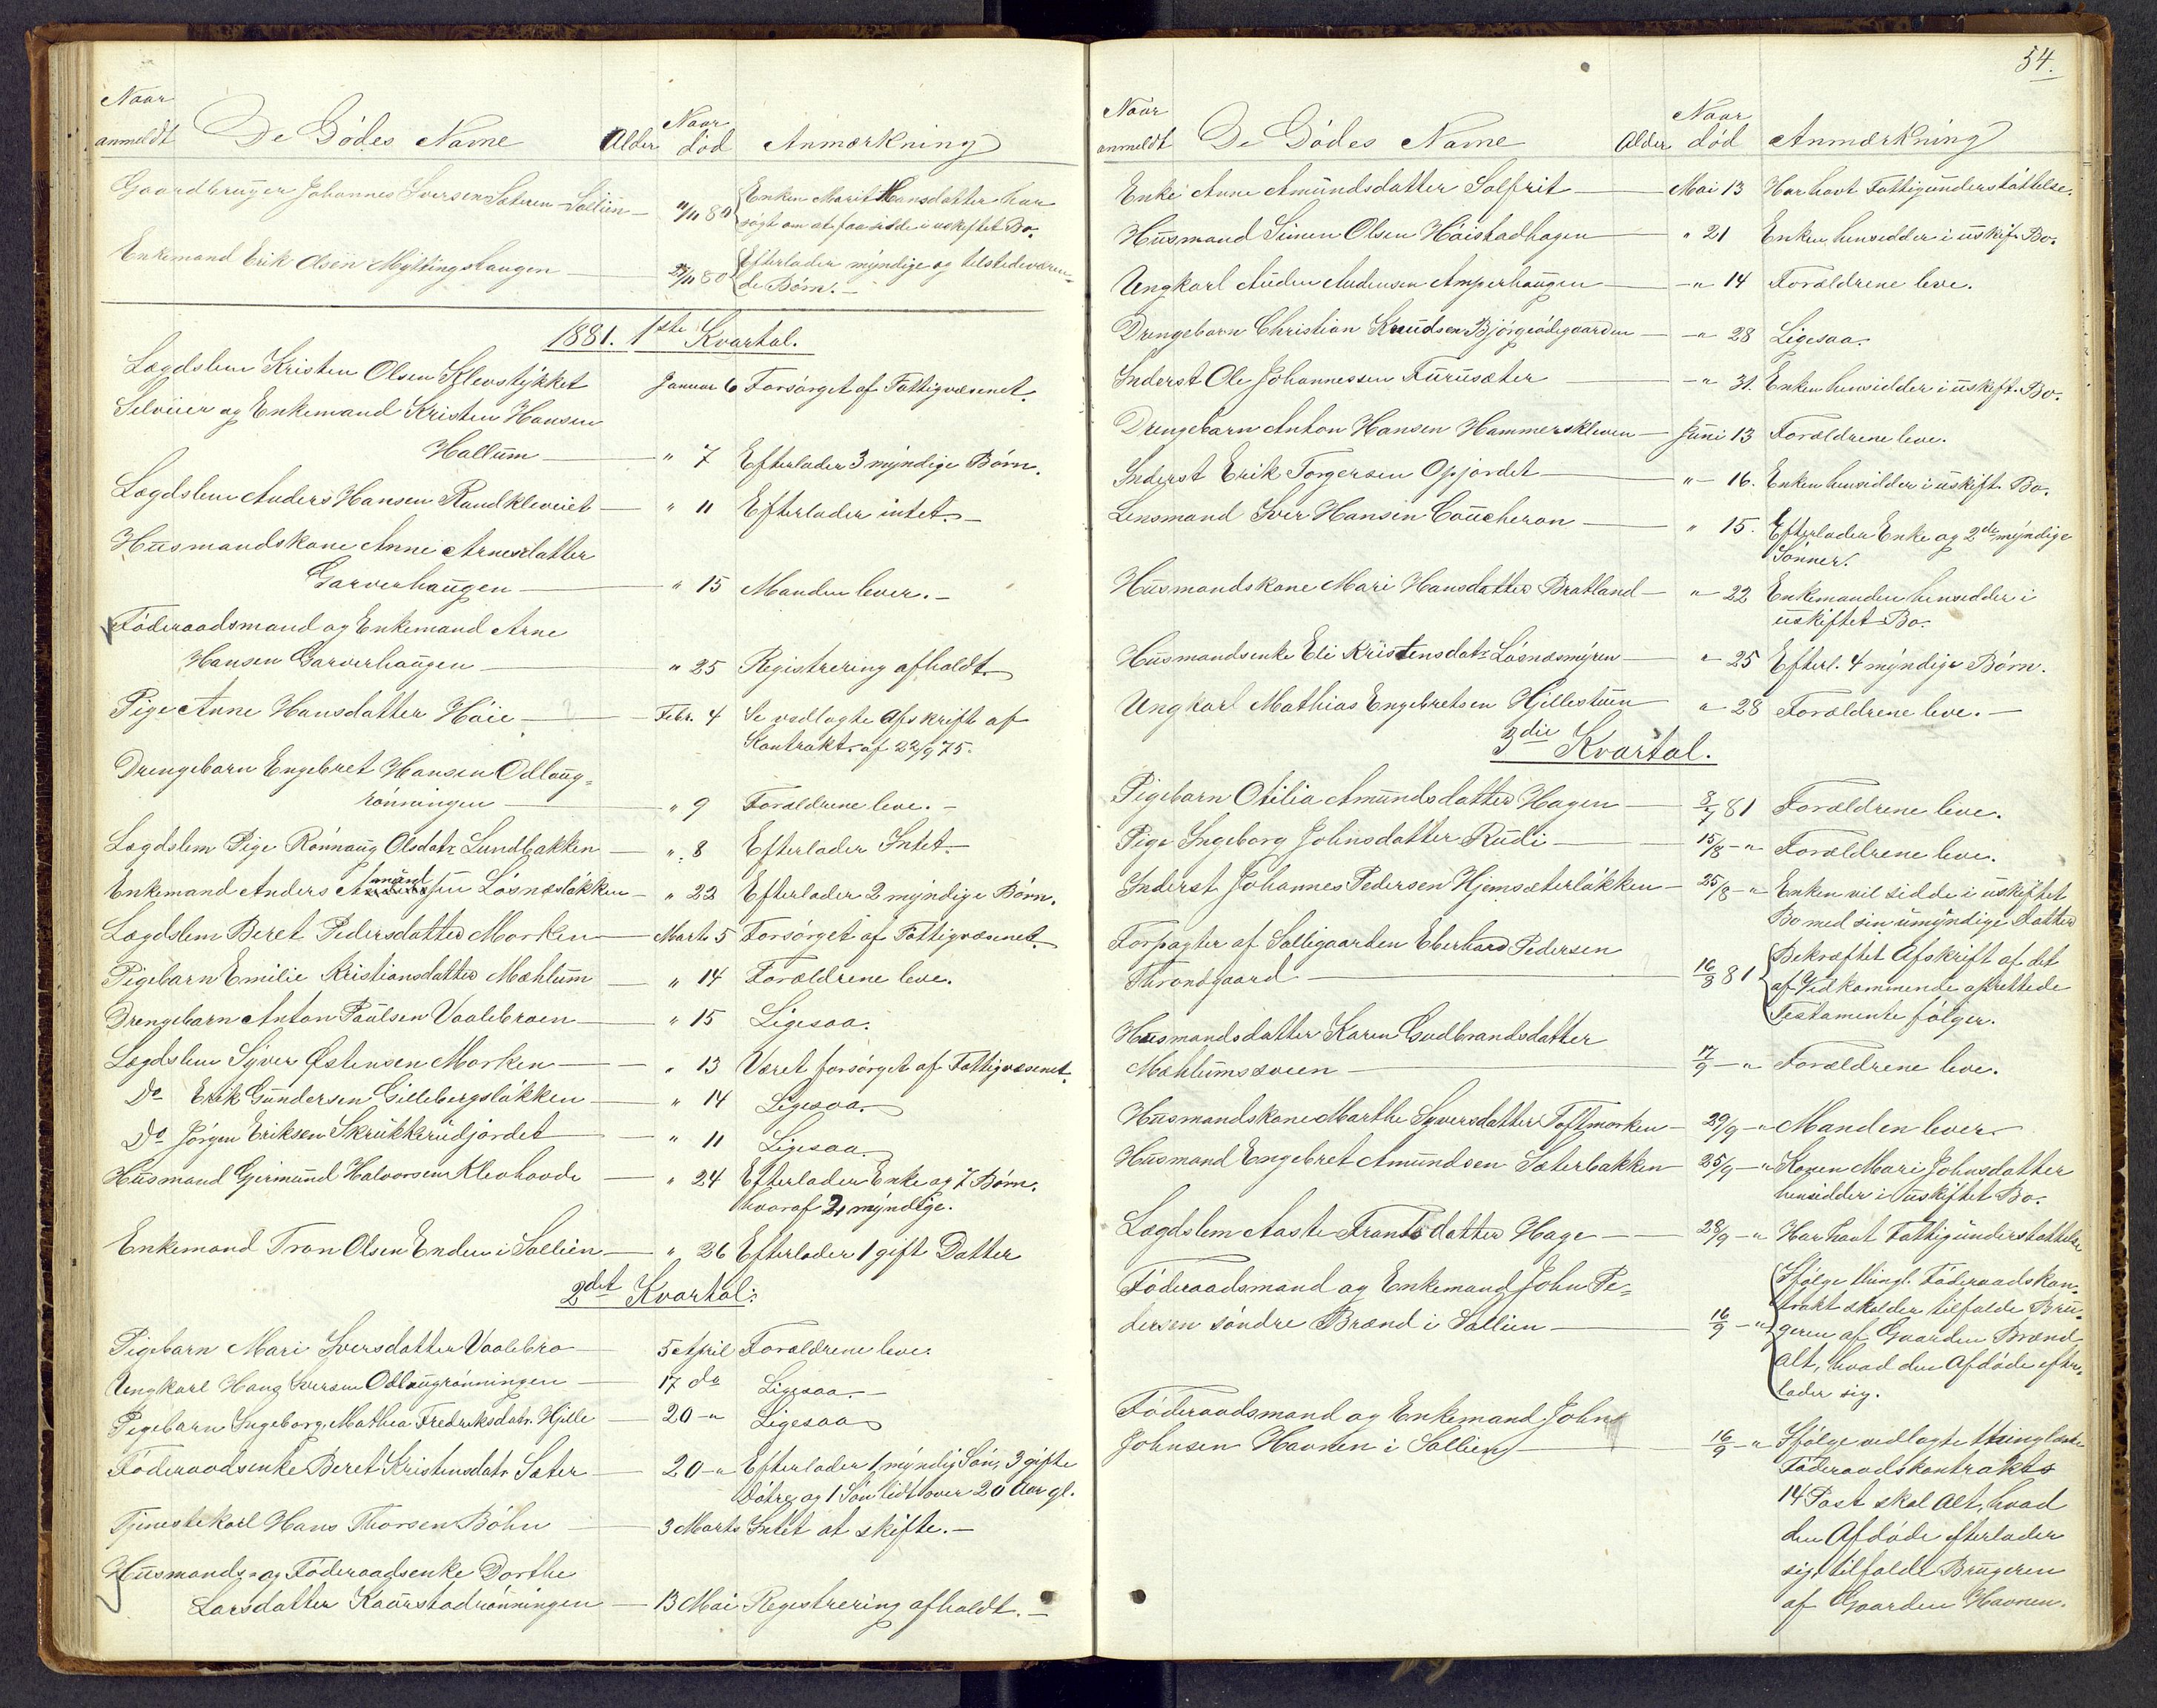 Naar
anmeldt De Dödes Navne Alder Naar död Anmærkning
Gaardbruger Johannes Iversen Sæteren Sollien — 11/11 80 Enken Marit Hansdatter har
søgt om at faa sidde i uskiftet Bo.
Enkemand Erik Olsen Myttingshaugen — 27/11 80 Efterlader myndige og tilstedeværen-
de Børn. —
1881. 1ste Kvartal.
Lægdslem Kristen Olsen Klevstykket Januar 6 Forsørget af Fattigvæsenet.
Selveier og Enkemand Kristen Hansen
Hallum — " 7 Efterlader 3 myndige Børn.
Lægdslem Anders Hansen Randkleveiet — " 11 Efterlader intet. —
Husmandskone Anne Arnesdatter
Garverhaugen — " 15 Manden lever. —
Föderaadsmand og Enkemand Arne
Hansen Garverhaugen — " 25 Registrering afholdt.
Pige Anne Hansdatter Höie — Febr. 4 Se vedlagte Afskrift af
Kontrakt af 22/9 75.
Drengebarn Engebret Hansen Odlaug-
rönningen — " 9 Forældrene leve. —
Lægdslem Pige Rönnaug Olsdatr Lundbakken — " 8 Efterlader Intet. —
Enkemand Anders Amundsen Lösnæslökken — " 22 Efterlader 2 myndige Børn.
Lægdslem Beret Pedersdatter Morken — Marts 5 Forsørget af Fattigvæsenet.
Pigebarn Emilie Kristiansdatter Mæhlum — " 14 Forældrene leve.
Drengebarn Anton Paulsen Vaalebroen — " 15 Ligesaa.
Lægdslem Syver Østensen Morken — " 13 Været forsørget af Fattigvæsenet.
Do Erik Gundersen Gillebergslökken — " 14 Ligesaa.
Do Jörgen Eriksen Skrukkerudjordet — " 11 Ligesaa.
Husmand Germund Halvorsen Klevhovde — " 24 Efterlader Enke og 7 Børn,
hvoraf 2 myndige.
Enkemand Tron Olsen Enden i Sollien — " 26 Efterlader 1 gift Datter
2det Kvartal:
Pigebarn Mari Iversdatter Vaalebro — 5 April Forældrene leve.
Ungkarl Hans Iversen Odlaugrönningen — 17 do Ligesaa. —
Pigebarn Ingeborg Mathea Fredriksdatr. Hjelle — 20 -" Ligesaa
Föderaadsenke Beret Kristensdatr Sæter — 20 -" Efterlader 1 myndig Sön, 3 gifte
Dötre og 1 Sön lidt over 20 Aar gl.
Tjenestekarl Hans Thorsen Böhn — 3 Marts Intet at skifte. —
Husmands- og Föderaadsenke Dorthe
Larsdatter Kaarstadrönningen — 13 Mai Registrering afholdt. —
54.
Naar
anmeldt De Dödes Navne Alder Naar död Anmærkning
Enke Anne Amundsdatter Solfrit — Mai 13 Har havt Fattigunderstøttelse.
Husmand Simen Olsen Höistadhagen — " 21 Enken hensidder i uskift. Bo.
Ungkarl Auden Audensen Amperhaugen — -" 14 Forældrene leve.
Drengebarn Christian Knudsen Bjørgeødegaarden — -" 28 Ligesaa.
Inderst Ole Johannessen Furusæter — -" 31. Enken hensidder i uskift. Bo.
Drengebarn Anton Hansen Hammerskleven — Juni 13 Forældrene leve.
Inderst Erik Torgersen Opjordet — "- 16. Enken hensidder i uskift. Bo.
Lensmand Iver Hansen Coucheron — " 15. Efterlader Enke og 2de myndige
Sönner.
Husmandskone Mari Hansdatter Bratland — "- 22 Enkemanden hensidder i
uskiftet Bo.
Husmandsenke Eli Kristensdatr Lösnæsmyren — "- 25 Efterl. 4 myndige Børn.
Ungkarl Mathias Engebretsen Hjellestuen — "- 28 Forældrene leve. —
3die Kvartal.
Pigebarn Otilia Amundsdatter Hagen — 3/7 81 Forældrene leve.
Pige Ingeborg Johnsdatter Rudi — 15/8 -" Forældrene leve.
Inderst Johannes Pedersen Hjemsæterlökken — 25/8 -" Enken vil sidde i uskiftet
Bo med sin umyndige Datter
Forpagter af Solligaarden Eberhard Pedersen
Throndgaard — 16/8 81 Bekræftet Afskrift af det
af Vedkommende oprettede
Testamente følger.
Husmandsdatter Karen Gudbrandsdatter
Mæhlumsveen — 17/9 -" Forældrene leve.
Husmandskone Marthe Syversdatter Toftmorken — 29/9 -" Manden lever.
Husmand Engebret Amundsen Sæterbakken — 25/9 -" Konen Mari Johnsdatter
hensidder i uskiftet Bo.
Lægdslem Aaste Frantsdatter Hage — 28/9 -" Har havt Fattigunderstøttelse
Föderaadsmand og Enkemand John Pe-
dersen søndre Brænd i Sollien — 16/9 -" Ifølge thingl. Föderaadskon-
trakt skal der tilfalde Bru-
geren af Gaarden Brænd
alt, hvad den Afdøde efter-
lader sig.
Föderaadsmand og Enkemand John
Johnsen Havnen i Sollien — 16/9 -" Ifølge vedlagte thinglæste
Föderaadskontrakts
14 Post skal alt, hvad
den Afdøde efterlader
sig, tilfalde Brugeren
af Gaarden Havnen.